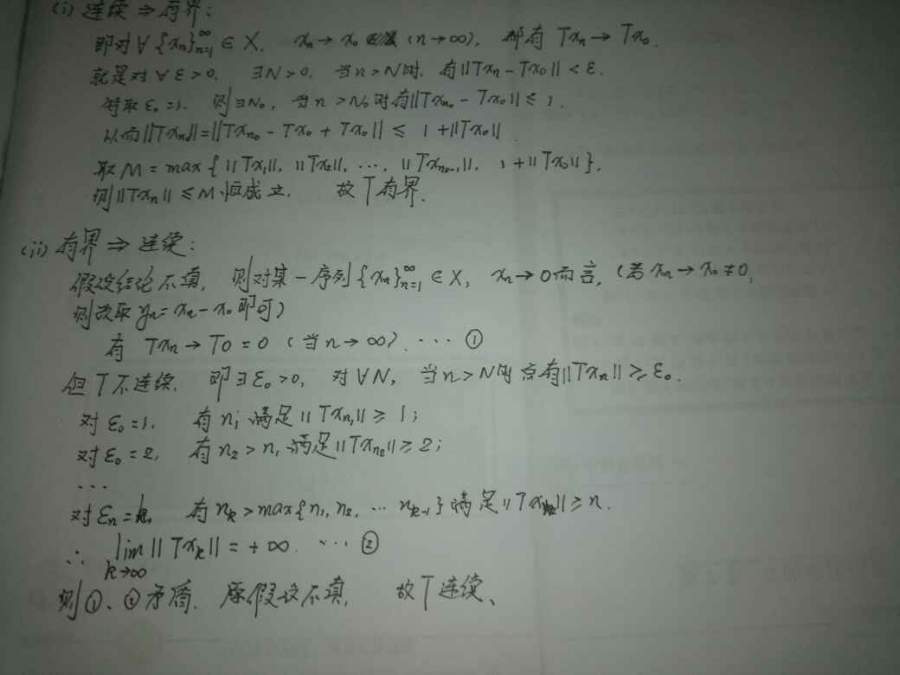 (i) 连续 ⇒ 有界:
即对∀{xn}∞n=1 ∈ X, xn → x0 (n→∞), 都有 Txn → Tx0.
就是对∀ε>0, ∃N>0, 当n>N时, 有||Txn - Tx0|| < ε.
特取ε0=1, 则∃N0, 当n>N0时有||Txn0 - Tx0|| ≤ 1.
从而||Txn||=||Txn0 - Tx0 + Tx0|| ≤ 1+||Tx0||
取M=max{||Tx1||, ||Tx2||, ⋯, ||Txn0-1||, 1+||Tx0||},
则||Txn|| ≤ M恒成立, 故T有界.
(ii) 有界 ⇒ 连续:
假设结论不真, 则对某一序列{xn}∞n=1 ∈ X, xn → 0而言, (若xn → x0 ≠ 0,
则改取yn=xn-x0即可)
有 Txn → T0 = 0 (当n→∞). ⋯ ①
但T不连续, 即∃ε0>0, 对∀N, 当n>N时有||Txn|| ≥ ε0.
对ε0=1, 有n1满足||Txn1|| ≥ 1;
对ε0=2, 有n2>n1满足||Txn2|| ≥ 2;
⋯
对εn=k, 有nk>max{n1, n2, ⋯ nk-1}满足||Txnk|| ≥ n.
∴ lim k→∞ ||Txk|| = +∞. ⋯ ②
则①、②矛盾. 原假设不真, 故T连续、